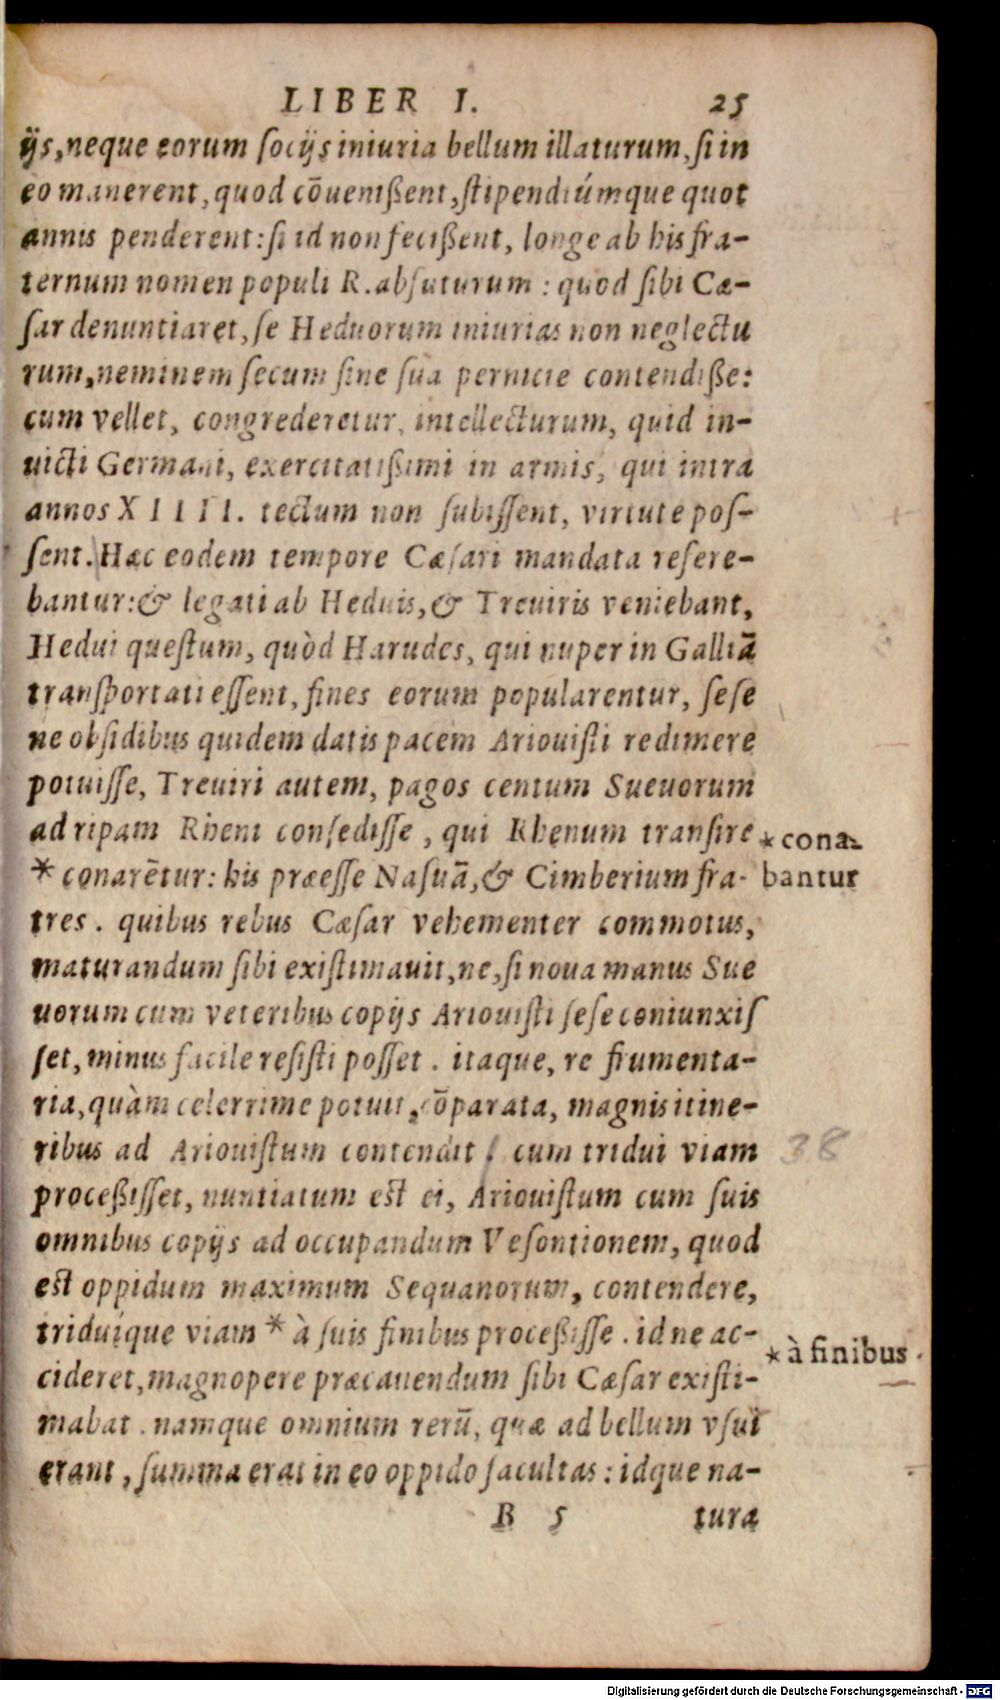 LIBER I. 25
ijs, neque eorum socijs iniuria bellum illaturum, si in
eo manerent, quod cōuenißent, stipendiúmque quot
annis penderent: si id non fecißent, longe ab his fra-
ternum nomen populi R. absuturum : quod sibi Cæ-
sar denuntiaret, se Heduorum iniurias non neglectu
rum, neminem secum sine sua pernicie contendiße:
cum vellet, congrederetur, intellecturum, quid in-
uicti Germani, exercitatißimi in armis, qui intra
annos XIIII. tectum non subissent, virtute pos-
sent. Hæc eodem tempore Cæsari mandata refere-
bantur: & legati ab Heduis, & Treuiris veniebant,
Hedui questum, quòd Harudes, qui nuper in Galliā
transportati essent, fines eorum popularentur, sese
ne obsidibus quidem datis pacem Ariouisti redimere
potuisse, Treuiri autem, pagos centum Sueuorum
ad ripam Rheni consedisse, qui Rhenum transire
* conarētur: his præesse Nasuā, & Cimberium fra-
tres. quibus rebus Cæsar vehementer commotus,
maturandum sibi existimauit, ne, si noua manus Sue
uorum cum veteribus copijs Ariouisti sese coniunxis
set, minus facile resisti posset. itaque, re frumenta-
ria, quàm celerrime potuit, cōparata, magnis itine-
ribus ad Ariouistum contendit. cum tridui viam
proceßisset, nuntiatum est ei, Ariouistum cum suis
omnibus copijs ad occupandum Vesontionem, quod
est oppidum maximum Sequanorum, contendere,
triduíque viam * à suis finibus proceßisse. id ne ac-
cideret, magnopere præcauendum sibi Cæsar existi-
mabat. namque omnium rerū, quæ ad bellum vsui
erant, summa erat in eo oppido facultas: idque na-
B 5 tura
* cona-
bantur
38
* à finibus.
Digitalisierung gefördert durch die Deutsche Forschungsgemeinschaft - DFG